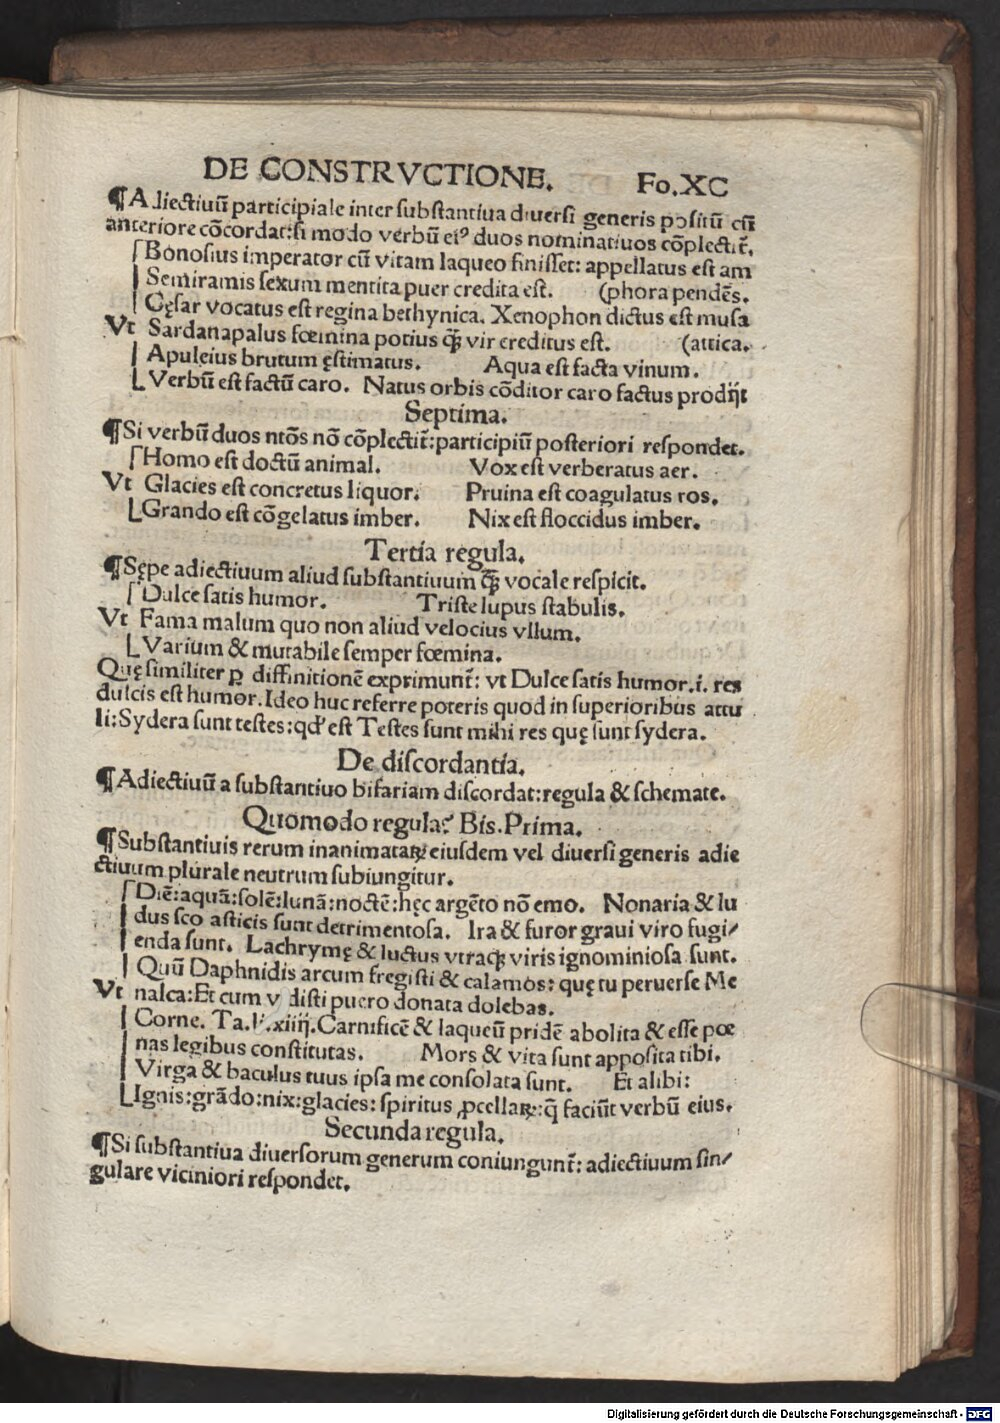 DE CONSTRVCTIONE. Fo.XC
¶Adiectiuū participiale inter substantiua diuersi generis positū cū
anteriore cōcordat:si modo verbū eiꝰ duos nominatiuos cōplectit̄.
Bonosius imperator cū vitam laqueo finisset: appellatus est am
Semiramis sexum mentita puer credita est. (phora pendēs.
Cęsar vocatus est regina bethynica. Xenophon dictus est musa
Vt Sardanapalus fœmina potius q̄ꝫ vir creditus est. (attica.
Apuleius brutum ęstimatus. Aqua est facta vinum.
Verbū est factū caro. Natus orbis cōditor caro factus prodijt
Septima.
¶Si verbū duos ntōs nō cōplectit̄:participiū posteriori respondet.
Homo est doctū animal. Vox est verberatus aer.
Vt Glacies est concretus liquor. Pruina est coagulatus ros.
Grando est cōgelatus imber. Nix est floccidus imber.
Tertia regula.
¶Sępe adiectiuum aliud substantiuum q̄ꝫ vocale respicit.
Dulce satis humor. Triste lupus stabulis.
Vt Fama malum quo non aliud velocius vllum.
Varium & mutabile semper fœmina.
Quę similiter ꝑ diffinitionē exprimunt̄: vt Dulce satis humor.i. res
dulcis est humor. Ideo huc referre poteris quod in superioribus attu
li:Sydera sunt testes:qd' est Testes sunt mihi res quę sunt sydera.
De discordantia.
¶Adiectiuū a substantiuo bifariam discordat:regula & schemate.
Quomodo regula? Bis. Prima.
¶Substantiuis rerum inanimataꝝ eiusdem vel diuersi generis adie
ctiuum plurale neutrum subiungitur.
Diē:aquā:solē:lunā:noctē:hęc argēto nō emo. Nonaria & lu
dus sco asticis sunt detrimentosa. Ira & furor graui viro fugi/
enda sunt. Lachrymę & luctus vtraqꝫ viris ignominiosa sunt.
Quū Daphnidis arcum fregisti & calamos: quę tu peruerse Me
Vt nalca:Et cum v disti puero donata dolebas.
Corne. Ta. li.xiiij.Carnificē & laqueū pridē abolita & esse pœ
nas legibus constitutas. Mors & vita sunt apposita tibi.
Virga & baculus tuus ipsa me consolata sunt. Et alibi:
Ignis:grādo:nix:glacies: spiritus ꝓcellaꝝ:q̄ faciūt verbū eius.
Secunda regula.
¶Si substantiua diuersorum generum coniungunt̄: adiectiuum sin/
gulare viciniori respondet.
Digitalisierung gefördert durch die Deutsche Forschungsgemeinschaft - DFG